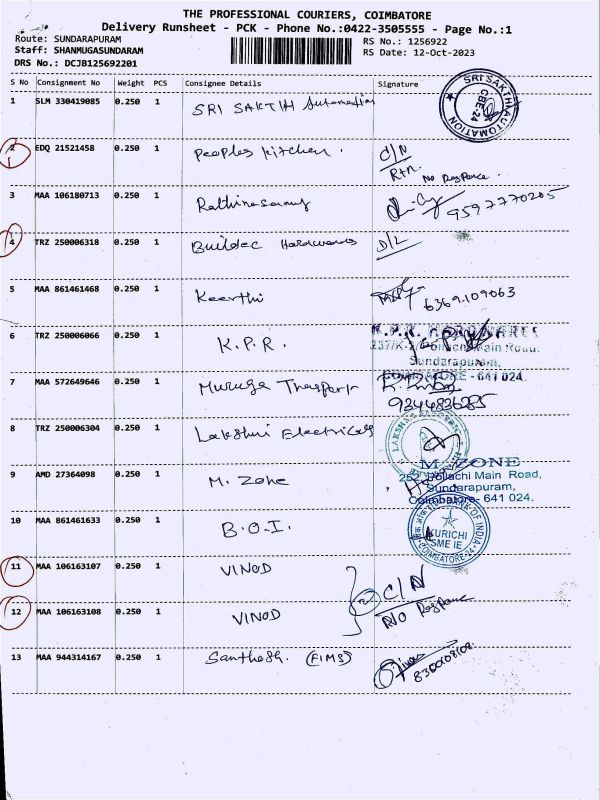 THE PROFESSIONAL COURIERS, COIMBATORE
Delivery Runsheet - PCK - Phone No.:0422-3505555 - Page No.:1
Route: SUNDARAPURAM
Staff: SHANMUGASUNDARAM
DRS No.: DCJB125692201
RS No.: 1256922
RS Date: 12-Oct-2023
S No Consignment No Weight PCS Consignee Details Signature
1 SLM 330419085 0.250 1 SRI SAKTHI Automation
SRI SAKTHI AUTOMATION CBE-24
2 EDQ 21521458 0.250 1 Peoples kitchen. C/N
Rtn. No Responce.
3 MAA 106180713 0.250 1 Rathinasamy 9597770205
4 TRZ 250006318 0.250 1 Buildec Hardwares D/L
5 MAA 861461468 0.250 1 Keerthi 6369109063
6 TRZ 250006066 0.250 1 K.P.R.
K.P.R. HARDWARES
Pollachi Main Road,
Sundarapuram,
COIMBATORE - 641 024.
7 MAA 572649646 0.250 1 Muruga Transport
9344836285
8 TRZ 250006304 0.250 1 Lakshmi Electricals
LAKSHMI ELECTRICALS
9 AMD 27364098 0.250 1 M. Zone
M. ZONE
Pollachi Main Road,
Sundarapuram,
Coimbatore- 641 024.
10 MAA 861461633 0.250 1 B.O.I.
BANK OF INDIA
KURICHI
SME IE
COIMBATORE-24
11 MAA 106163107 0.250 1 VINOD
12 MAA 106163108 0.250 1 VINOD
2 C/N
No Responce
13 MAA 944314167 0.250 1 Santhosh. (FIMS)
8300108108